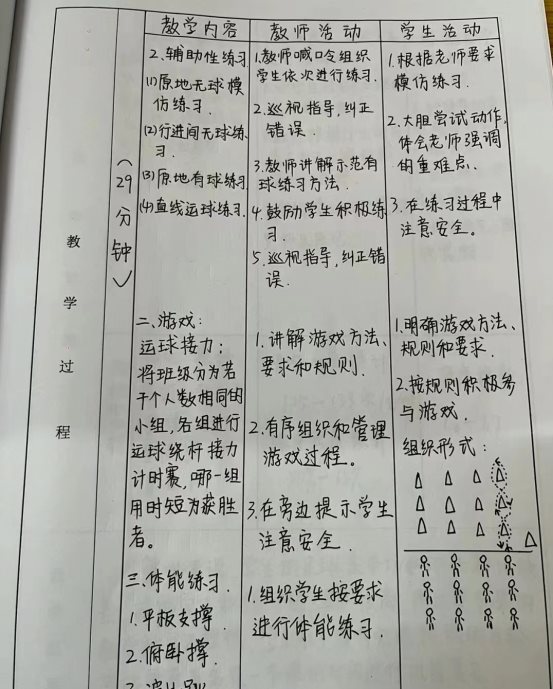 教学内容
教师活动
学生活动
教学过程
(29分钟)
2.辅助性练习
(1)原地无球模
仿练习.
(2)行进间无球练
习.
(3)原地有球练习
(4)直线运球练习.
二、游戏:
运球接力:
将班级分为若
干个人数相同的
小组,各组进行
运球绕杆接力
计时赛,哪一组
用时短为获胜
者。
三、体能练习.
1.平板支撑
2.俯卧撑.
1.教师喊口令组织
学生依次进行练习.
2.巡视指导,纠正
错误.
3.教师讲解示范有
球练习方法.
4.鼓励学生积极练
习.
5.巡视指导,纠正错
误.
1.讲解游戏方法、
要求和规则.
2.有序组织和管理
游戏过程。
3.在旁边提示学生
注意安全.
1.组织学生按要求
进行体能练习.
1.根据老师要求
模仿练习.
2.大胆尝试动作,
体会老师强调
的重难点.
3.在练习过程中
注意安全。
1.明确游戏方法、
规则和要求.
2.按规则积极参
与游戏.
组织形式: